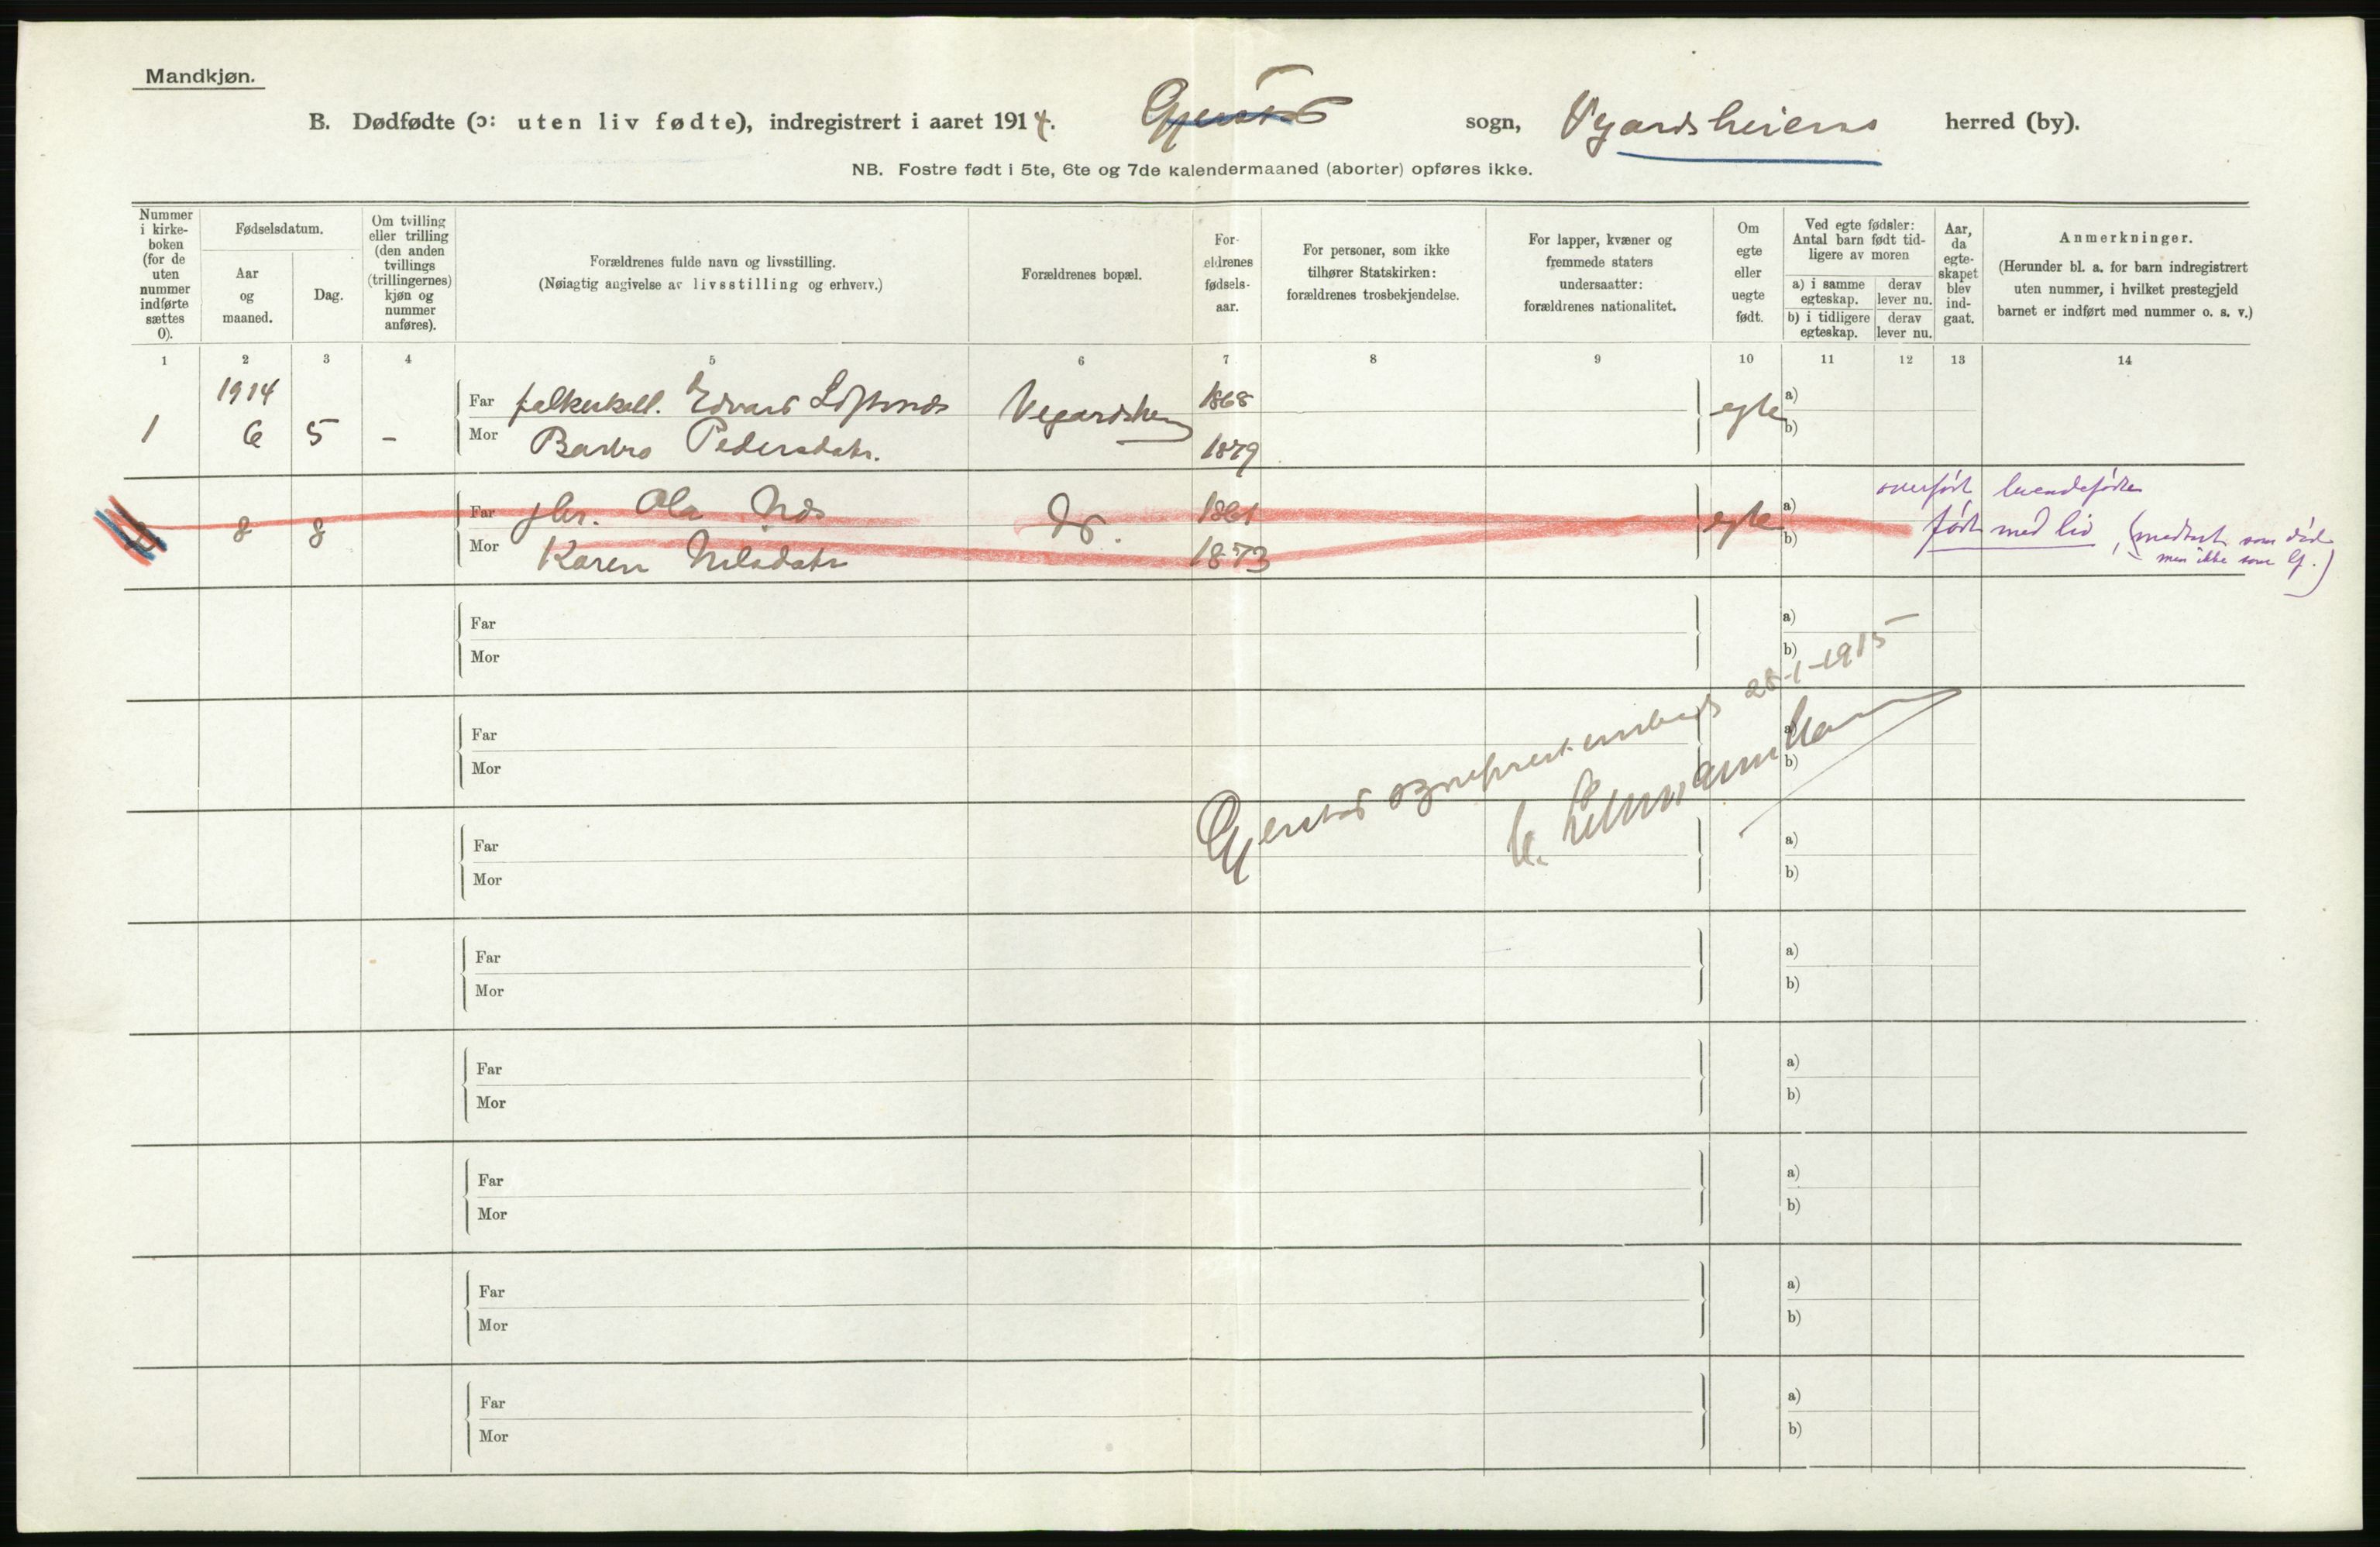 Mandkjøn.
B. Dødfødte (ɔ: uten liv fødte), indregistrert i aaret 1914. sogn, Vegardsheiens herred (by).
NB. Fostre født i 5te, 6te og 7de kalendermaaned (aborter) opføres ikke.
Nummer i kirke-boken (for de uten nummer indførte sættes 0).
Fødselsdatum.
Aar og maaned.
Dag.
Om tvilling eller trilling (den anden tvillings (trillingernes) kjøn og nummer anføres).
Forældrenes fulde navn og livsstilling.
(Nøiagtig angivelse av livsstilling og erhverv.)
Forældrenes bopæl.
For-ældrenes fødsels-aar.
For personer, som ikke tilhører Statskirken: forældrenes trosbekjendelse.
For lapper, kvæner og fremmede staters undersaatter: forældrenes nationalitet.
Om egte eller uegte født.
Ved egte fødsler: Antal barn født tid-ligere av moren
a) i samme egteskap.
derav lever nu.
b) i tidligere egteskap.
derav lever nu.
Aar, da egte-skapet blev ind-gaat.
Anmerkninger.
(Herunder bl. a. for barn indregistrert uten nummer, i hvilket prestegjeld barnet er indført med nummer o. s. v.)
1 2 3 4 5 6 7 8 9 10 11 12 13 14
1914
1 6 5 -
Far Edvard Vegardshei 1868 egte a)
Mor Barbro Pedersdatr. 1879 b)
overført levendefødte
2 8 8 Far Ola Næs do. 1861 egte a)
født med liv, (medtat som død
Mor Karen Nilsdatr 1873 b)
men ikke som lf.)
Far a)
Mor b)
Far a)
Mor b)
Gjerstad sogneprestembede 28-1-1915
Far a)
Mor b)
Far a)
Mor b)
Far a)
Mor b)
Far a)
Mor b)
Far a)
Mor b)
Far a)
Mor b)